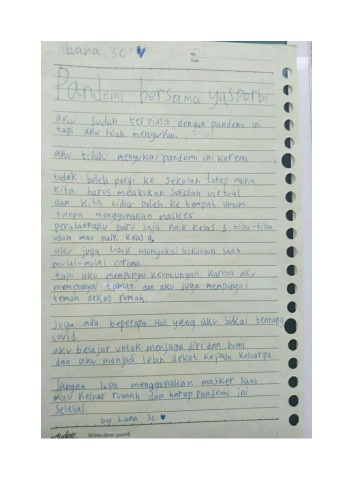 Luna 3c
No.
Date
Pandemi bersama yasporbi
aku sudah terbiasa dengan pandemi ini
tapi aku tidak menyukai.
aku tidak menyukai pandemi ini karena
tidak boleh pergi ke sekolah tatap muka
kita harus melakukan sekolah virtual
dan kita tidak boleh ke tempat umum
tanpa menggunakan masker
perasaanku baru saja naik kelas 3 tiba-tiba
udah mau naik kelas 4.
aku juga tidak menyukai lockdown saat
mulai-mulai corona
tapi aku mempunyai keuntungan karena aku
mempunyai taman dan aku juga mempunyai
teman dekat rumah.
Juga ada beperapa hal yang aku sukai tentang
covid
aku belajar untuk menjaga diri dan bumi
dan aku menjadi lebih dekat kepada keluarga.
Jangan lupa menggunakan masker saat
mau keluar rumah dan harap pandemi ini
selesai
by Luna 3c